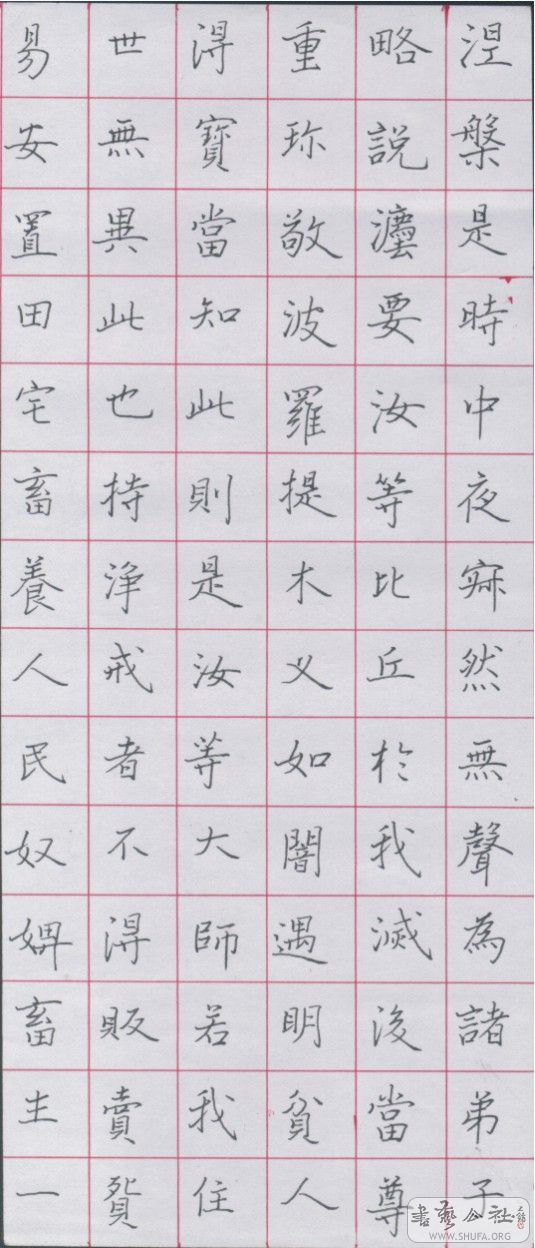 涅槃是時中夜寂然無聲為諸弟子
略説灋要汝等比丘於我滅後當尊
重珍敬波羅提木叉如闇遇明貧人
得寶當知此則是汝等大師若我住
世無異此也持浄戒者不得販賣貿
易安置田宅畜養人民奴婢畜生一
書藝公社
WWW.SHUFA.ORG